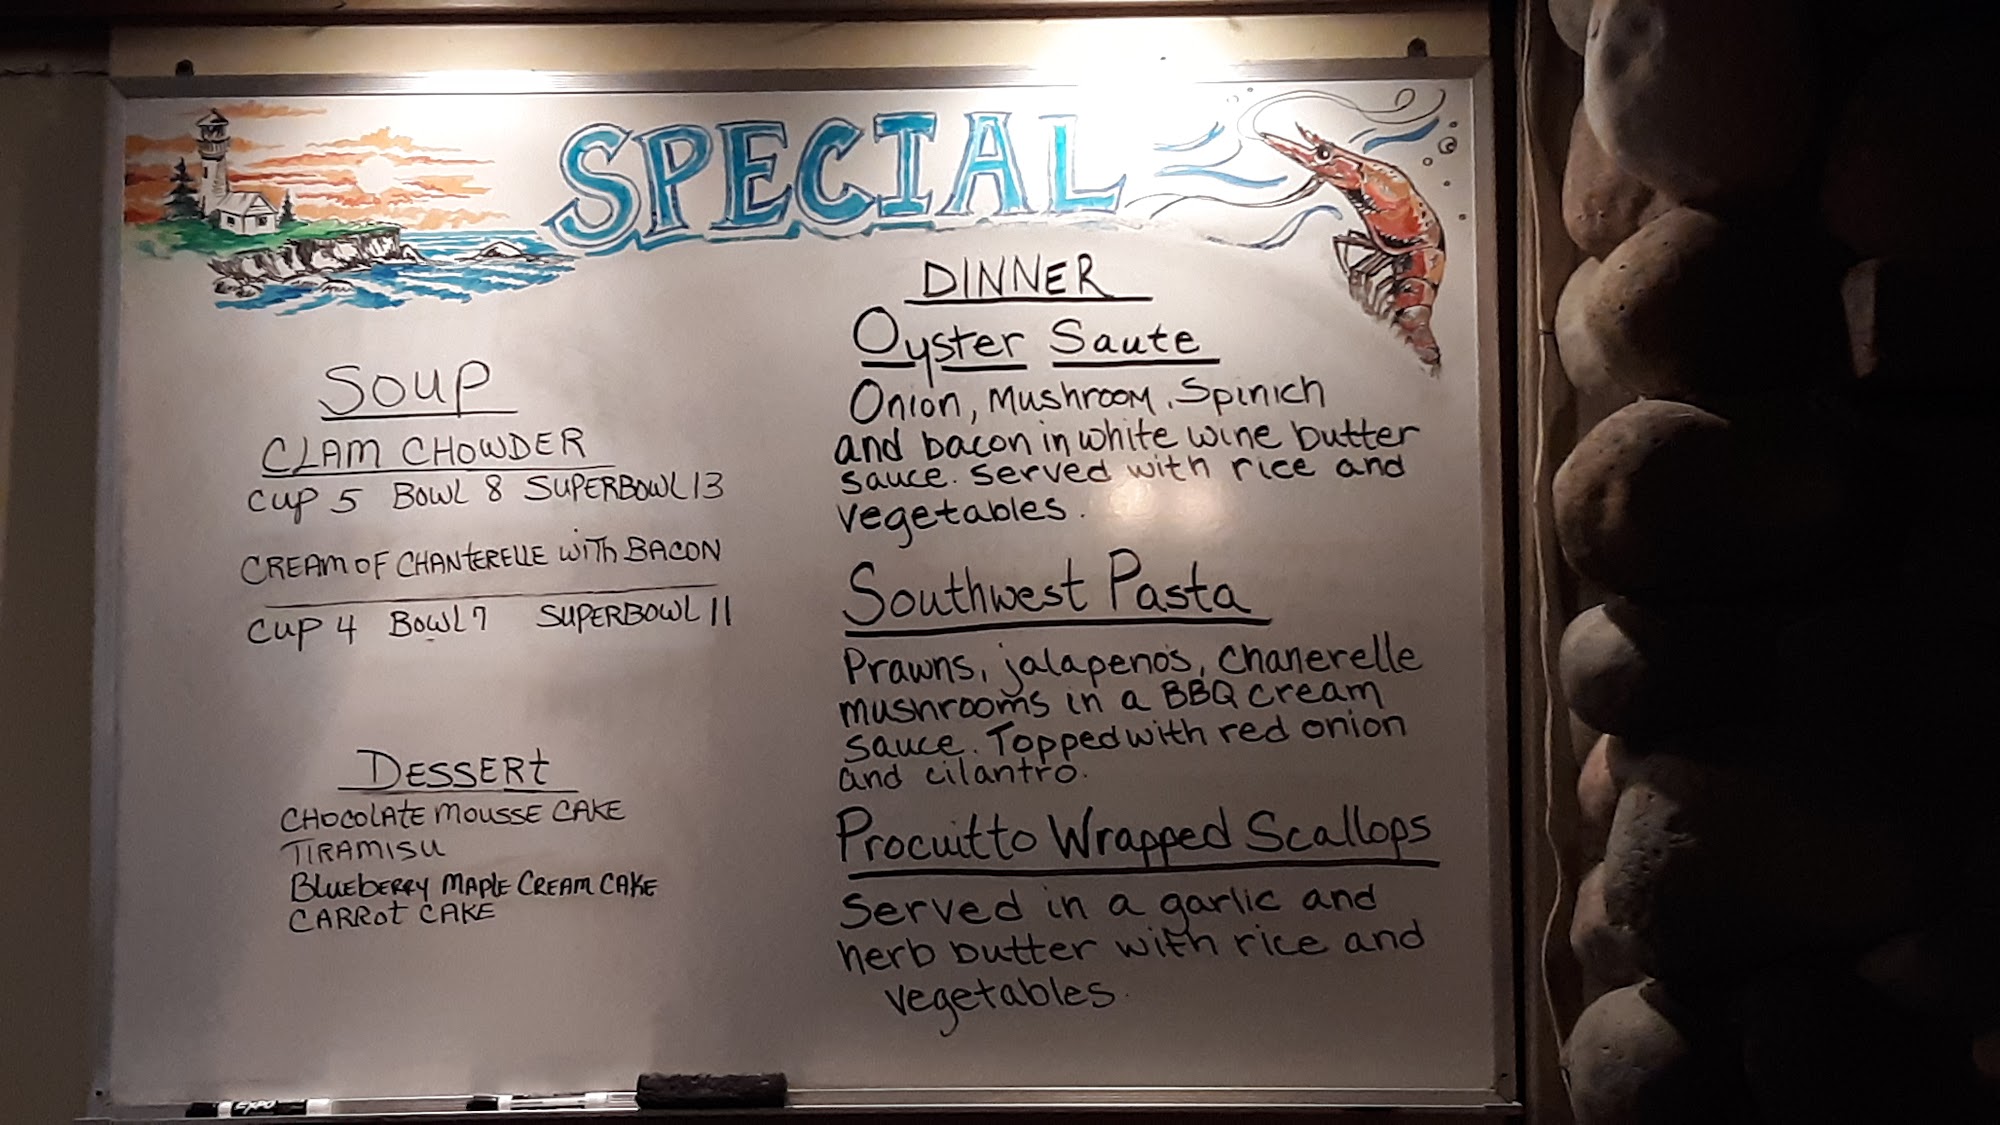 SPECIAL
SOUP
CLAM CHOWDER
CUP 5 BOWL 8 SUPERBOWL 13
CREAM OF CHANTERELLE WITH BACON
CUP 4 BOWL 7 SUPERBOWL 11
DESSERT
CHOCOLATE MOUSSE CAKE
TIRAMISU
BLUEBERRY MAPLE CREAM CAKE
CARROT CAKE
DINNER
Oyster Saute
Onion, Mushroom, Spinich
and bacon in white wine butter
sauce. Served with rice and
vegetables.
Southwest Pasta
Prawns, jalapeno's, Chanerelle
mushrooms in a BBQ cream
sauce. Topped with red onion
and cilantro.
Procuitto Wrapped Scallops
Served in a garlic and
herb butter with rice and
vegetables.
EXPO